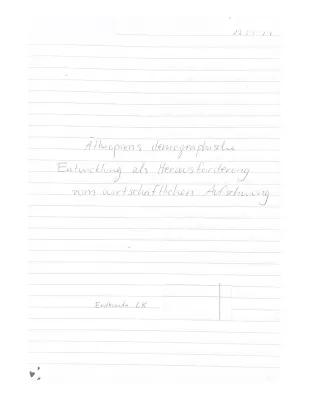 Äthiopiens demographische
Entwicklung als Herausforderung
vom wirtschaftlichen Aufschwung
Erdkunde LK